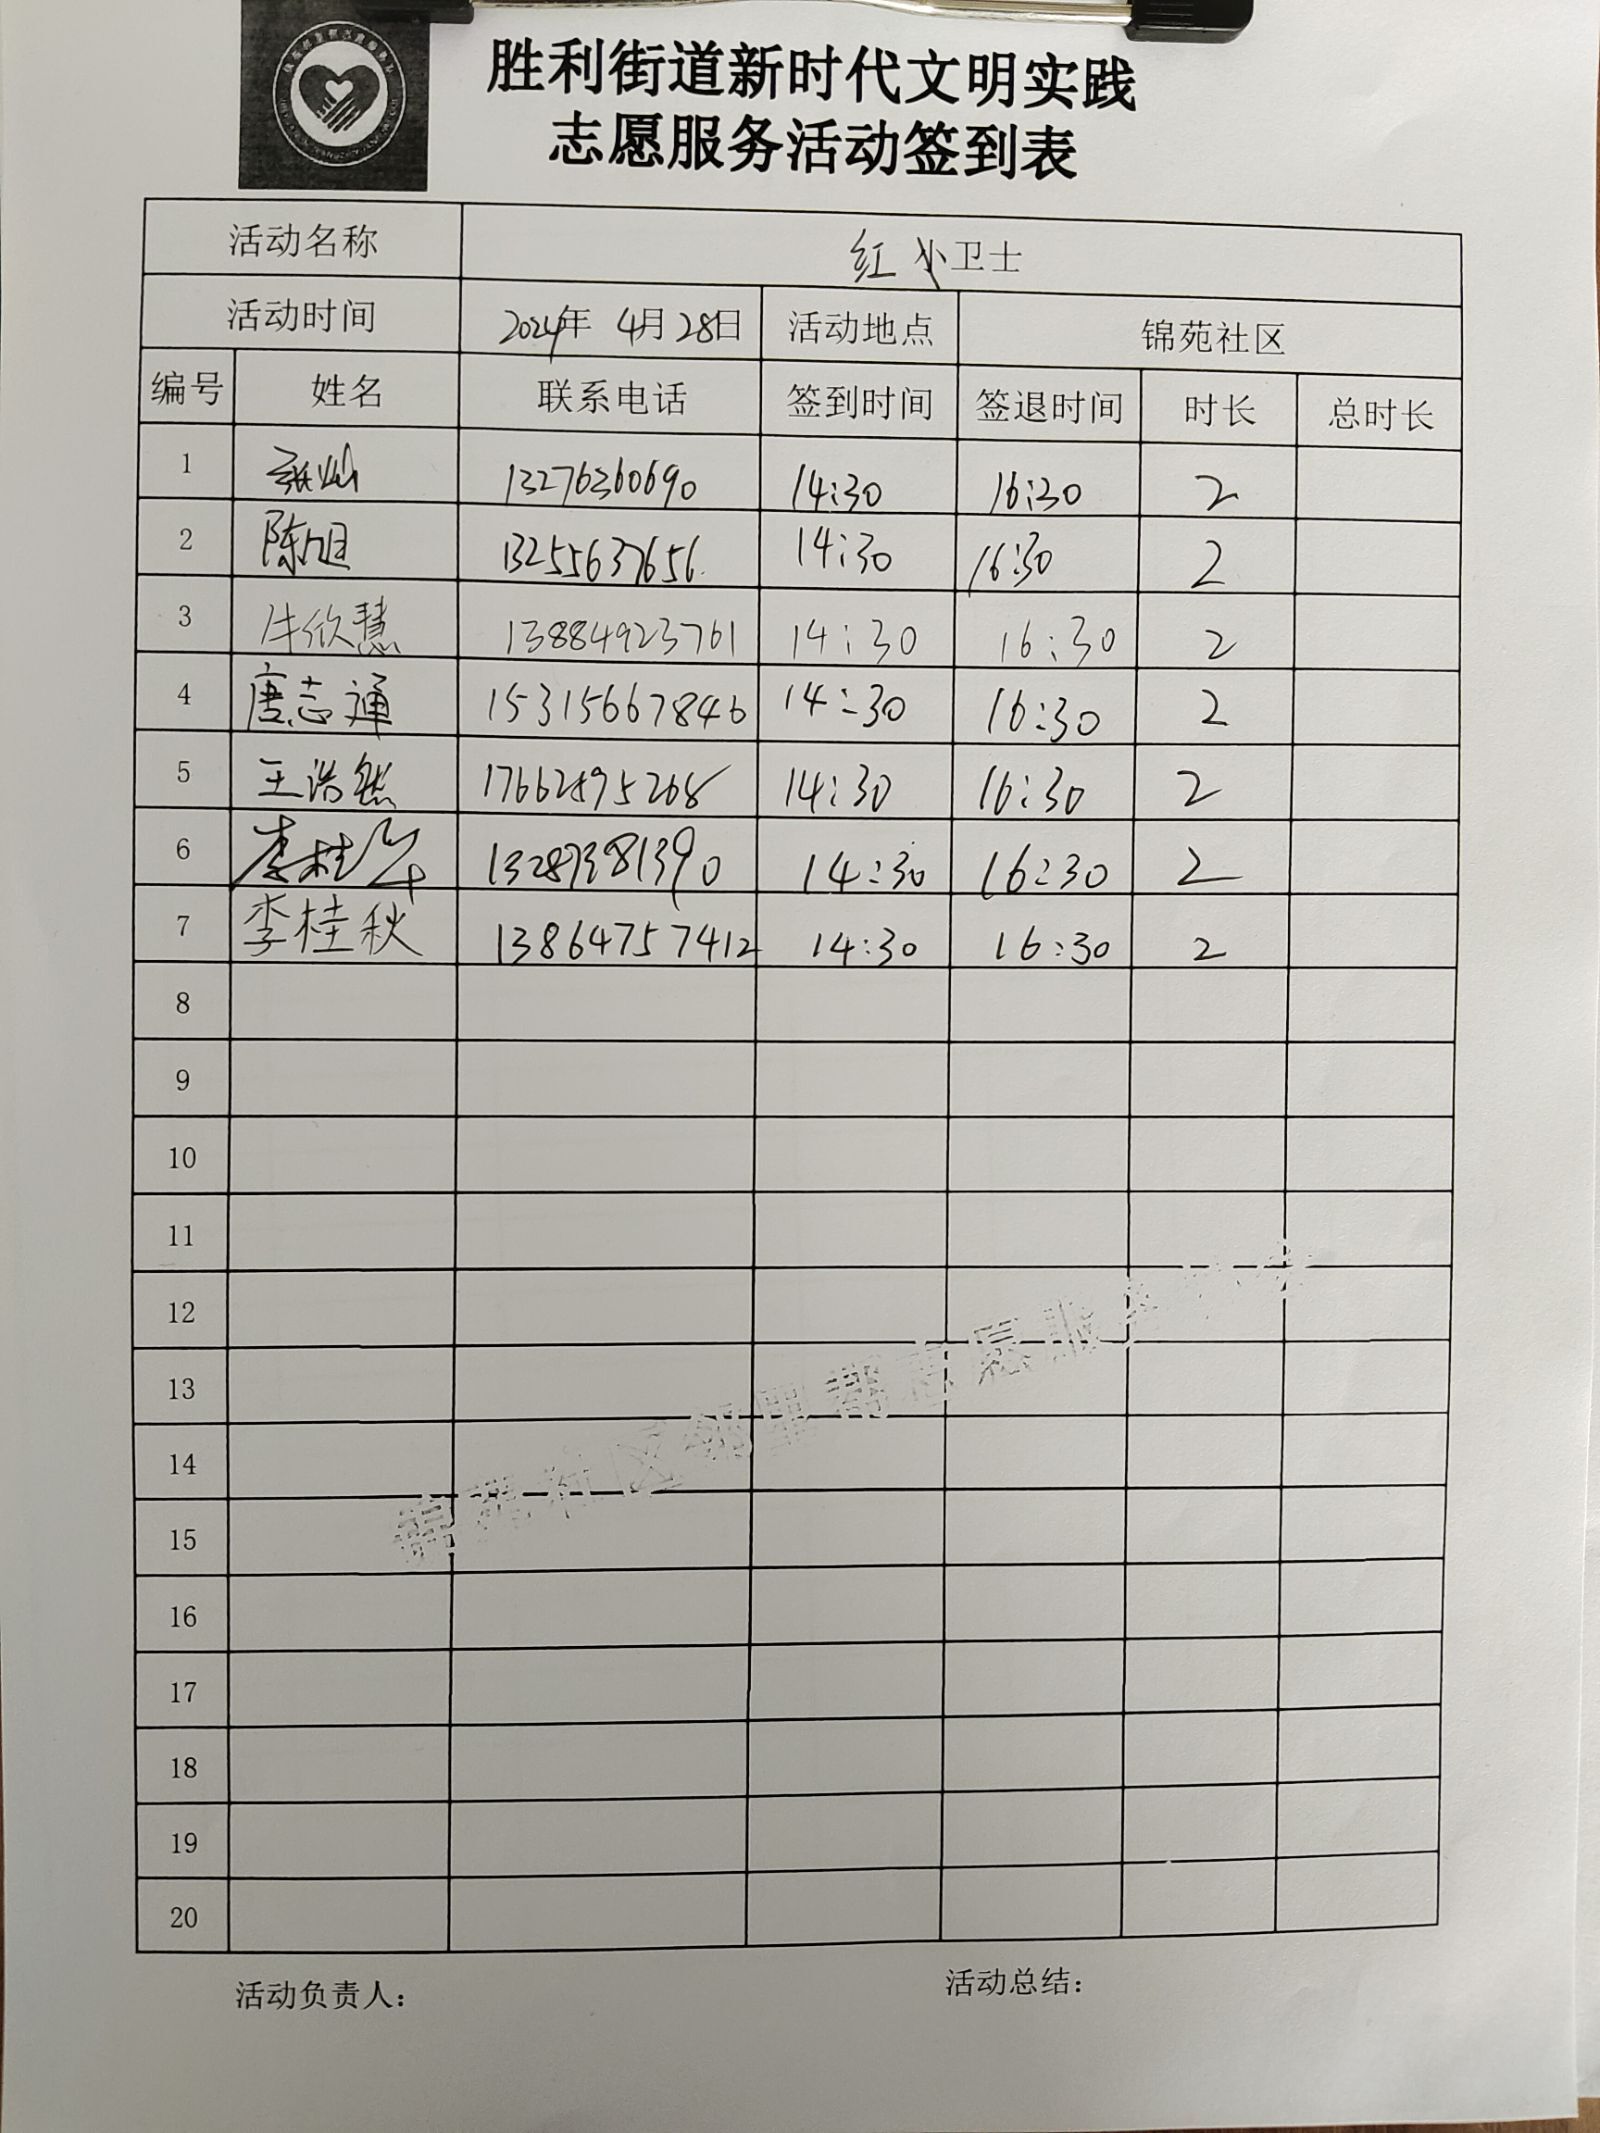 胜利街道新时代文明实践
志愿服务活动签到表
活动名称 红小卫士
活动时间 2024年 4月28日 活动地点 锦苑社区
编号 姓名 联系电话 签到时间 签退时间 时长 总时长
1 张灿 13276360690 14:30 16:30 2
2 陈旭 13255637656 14:30 16:30 2
3 牛欣慧 13884923761 14:30 16:30 2
4 唐志通 15315667846 14:30 16:30 2
5 王浩然 17662895268 14:30 16:30 2
6 李桂华 13287381390 14:30 16:30 2
7 李桂秋 13864757412 14:30 16:30 2
8
9
10
11
12
13
14
15
16
17
18
19
20
锦苑社区邻里帮志愿服务
活动负责人： 活动总结：